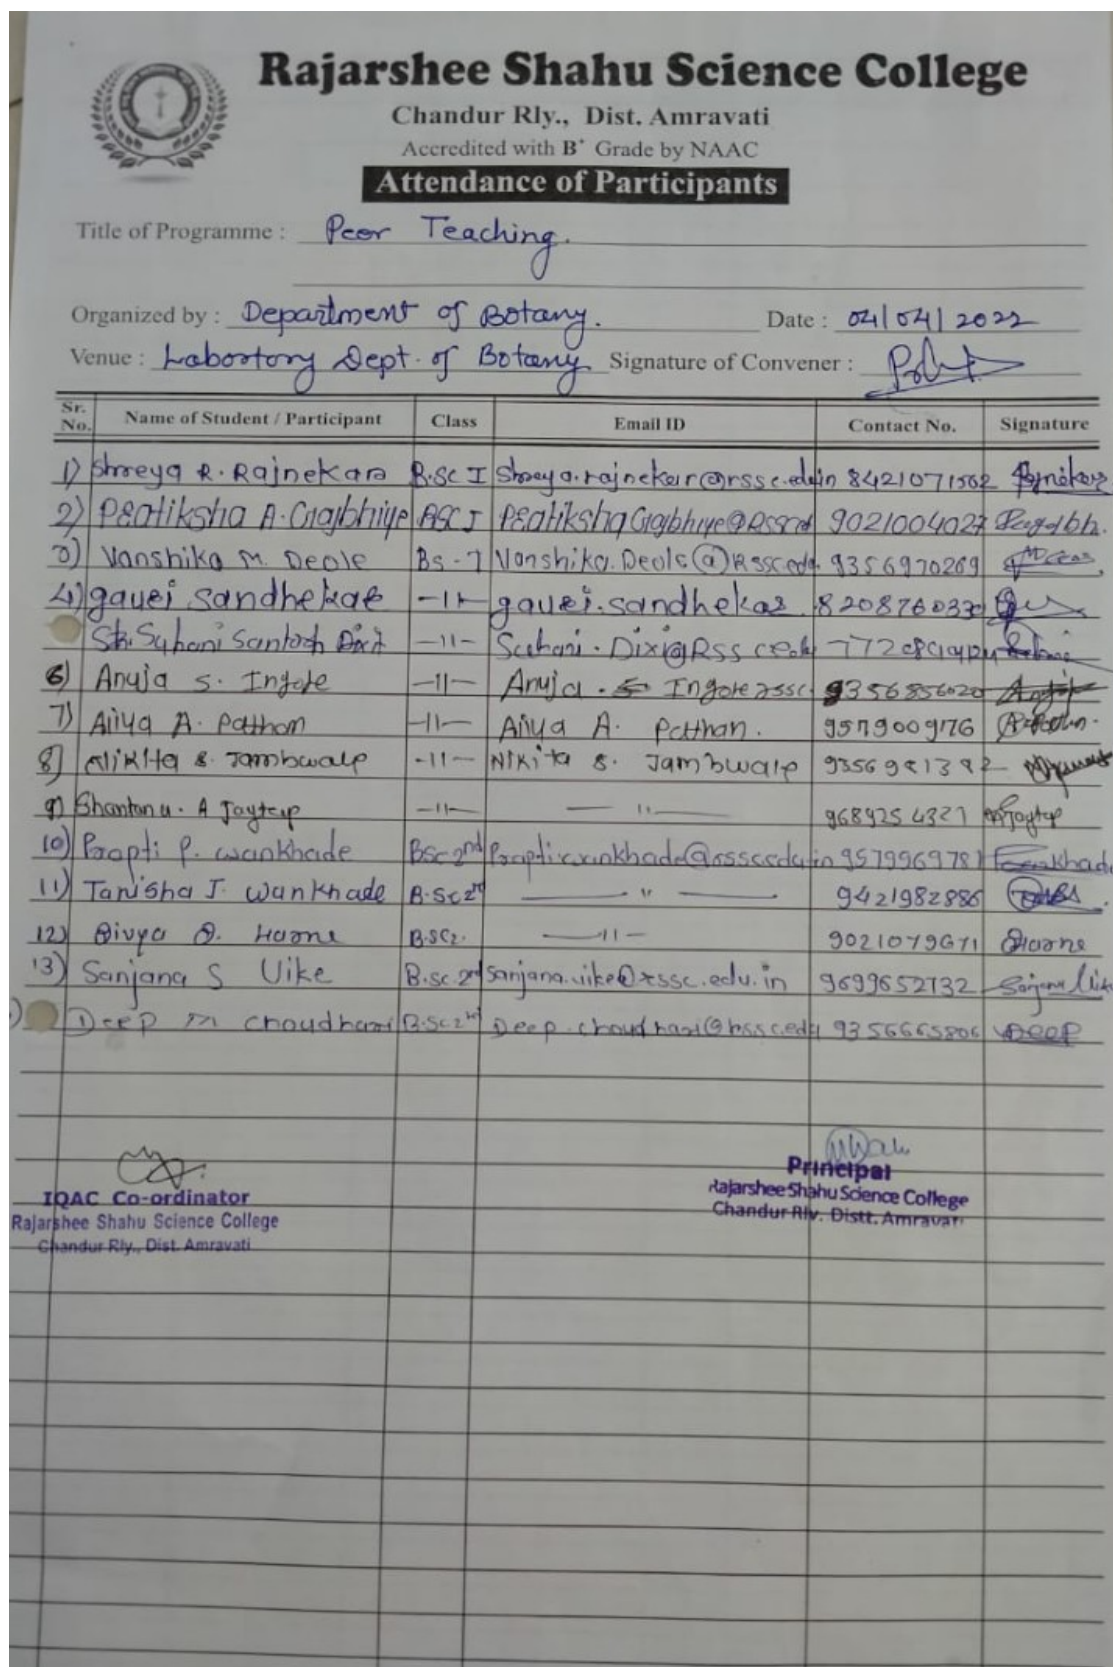 Rajarshee Shahu Science College
Chandur Rly., Dist. Amravati
Accredited with B+ Grade by NAAC
Attendance of Participants
Title of Programme : Peer Teaching.
Organized by : Department of Botany. Date : 04/04/2022
Venue : Labortory Dept. of Botany Signature of Convener :
Sr. No. Name of Student / Participant Class Email ID Contact No. Signature
1) Shreya R. Rajnekar B.SC I Shreya.rajnekar@rssc.edu.in 8421071562 Rajnekar
2) Pratiksha A. Gajbhiye BSC I 9021004027
3) Vanshika M. Deole Vanshika.Deole@Rssc.edu. 9356970269
4) gauri sandhekar -11- gauri.sandhekar
Suhani Santosh Dixit -11-
6) Anuja S. Ingole -11- Anuja. Ingole rssc 9356856020
7) Aliya A. Patthan -11- Aliya A. Patthan. 9579009176
8) Nikita S. Jambwalp -11- Nikita S. Jambwalp 9356981392
9) Shantanu. A Jagtap -11- -11- 9689254327 Jagtap
10) Prapti P. Wankhade BSC 2nd Prapti.wankhade@rssc.edu.in 9579969781
11) Tanisha J. Wankhade B.Sc 2nd -11- 9421982886
12) Divya D. Harne B.SC2. -11- 9021079671 Harne
13) Sanjana S Uike B.sc.2nd sanjana.uike@rssc.edu.in 9699652732 Sanjana Uike
Deep M Choudhari B.Sc 2nd Deep.choudhari@rssc.edu 9356665806 DEEP
IQAC Co-ordinator
Rajarshee Shahu Science College
Chandur Rly., Dist. Amravati
Principal
Rajarshee Shahu Science College
Chandur Rly. Distt. Amravati